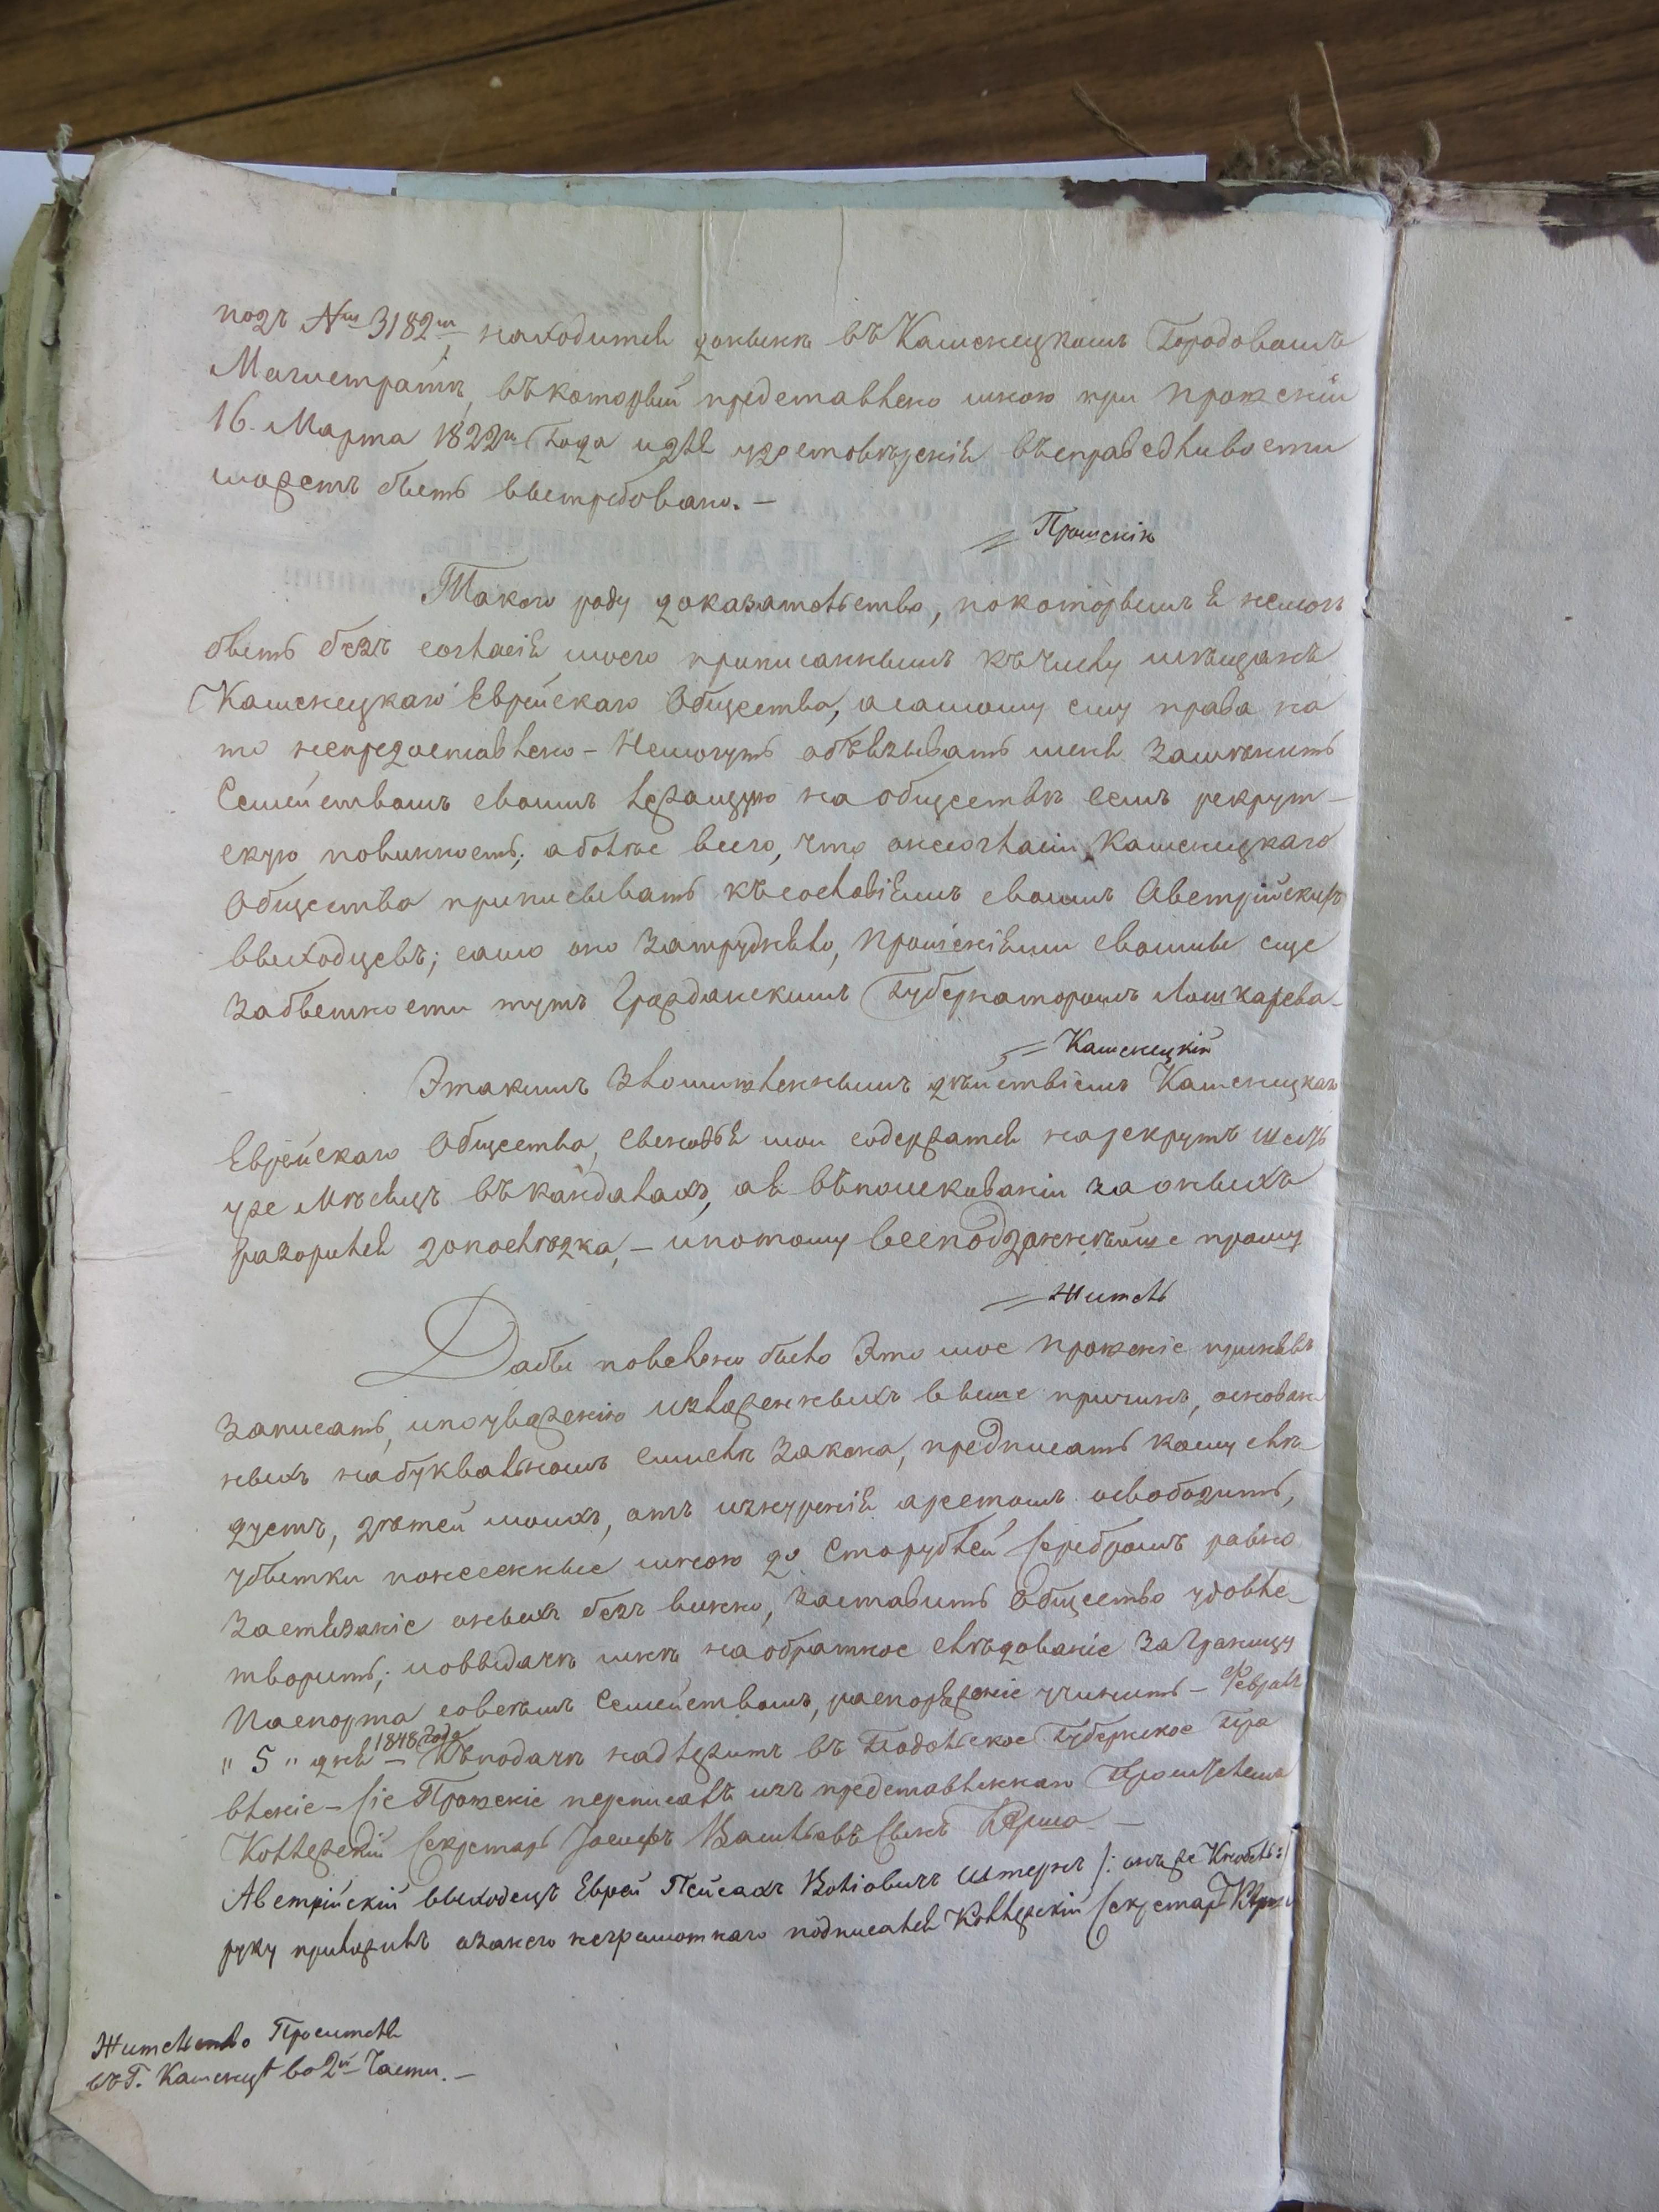 подъ № 3182м, находится донынѣ въ Каменецкомъ Городовомъ
Магистратѣ, въ который представлено мною при прошеніи
16. Марта 1822го Года и для удостовѣренія въ справедливости
можетъ быть вытребовано. —
= Прошеніи
Такого роду доказательство, по которымъ я немогъ
быть безъ согласія моего приписаннымъ къ числу мѣщанъ
Каменецкаго Еврейскаго Общества, а самому ему права на
то непредоставлено — Немогутъ обѣязывать меня замѣнить
Семействомъ своимъ лежащую на обществѣ семъ рекрут-
скую повинность; а болѣе всего, что о несогласіи Каменецкаго
Общества приписывать къ сословіямъ своимъ Австрійскихъ
выходцевъ; само оно затрудняло, прошеніями своими еще
за бытности тутъ Гражданскимъ Губернаторомъ Лошкарева.
= Каменецкій
Этакимъ злоумышленнымъ дѣйствіемъ Каменецкаго
Еврейскаго Общества, сыновья мои содержатся на рекрутъ
уже Мѣсяцъ въ кандалахъ, а я въ поискиваніи за оныхъ
разорился до послѣдка, — и потому всеподданнѣйше прошу
= Житель
Дабы повелено было Это мое прошеніе принявъ
записать, и по уваженію изложенныхъ выше причинъ, основан-
ныхъ на буквальномъ смыслѣ закона, предписать кому слѣ-
дуетъ, дѣтей моихъ, отъ изнуренія арестомъ освободить,
убытки понесенные мною до Сто рублей серебромъ равно
заетизаніе оныхъ безъ винно, заставить Общество удовле-
творить; и о выдачѣ мнѣ на обратное слѣдованіе за Границу
паспорта со всѣмъ Семействомъ, распоряженіе учинить — Февраля
„ 5 „ дня 1848 года — Къ подачѣ надлежитъ въ Подольское Губернское Пра
вленіе — Сіе Прошеніе переписалъ изъ представленнаго
Коллежскій Секретарь Іосифъ Васильевъ Сынъ
Австрійскій выходецъ Еврей Пейсахъ Штернъ /: онъ же
руку приложилъ а за него неграмотнаго подписался Коллежскій Секретарь
Жительство Просителя
въ Г. Каменцѣ во 2й Части. —